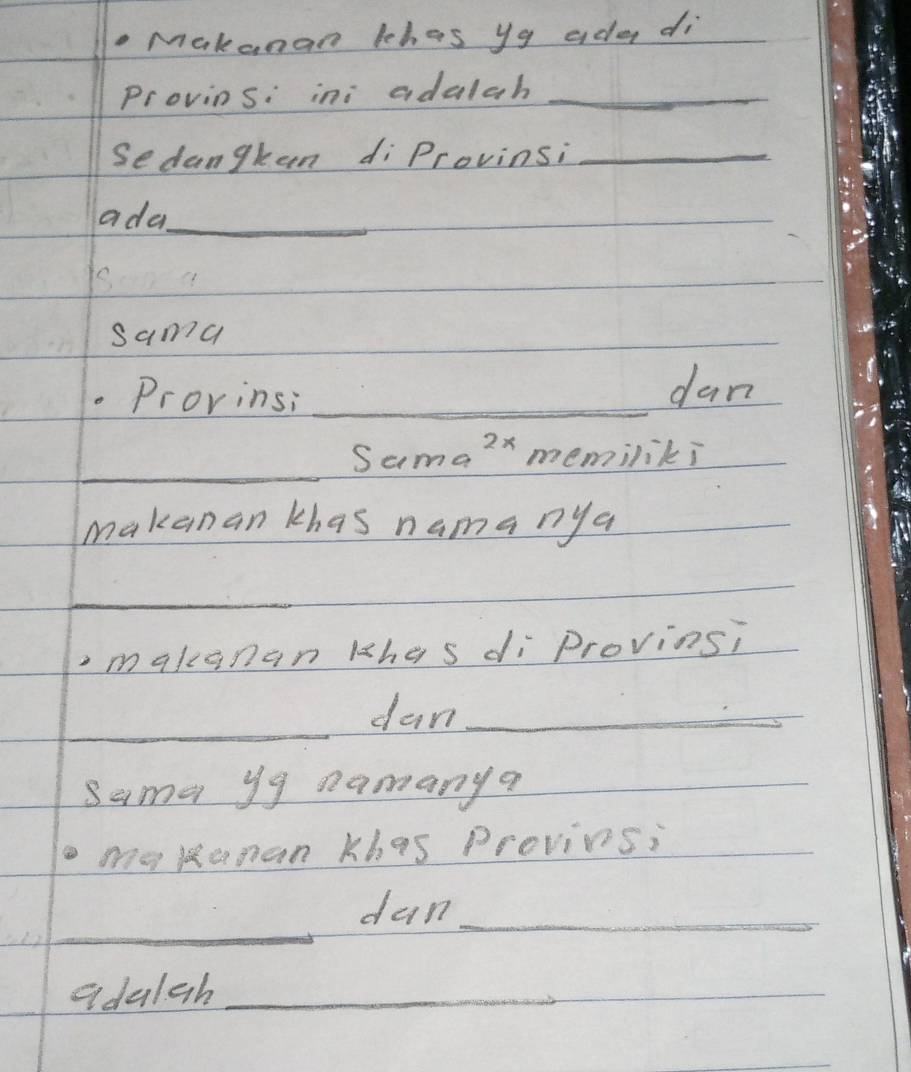 • Makanan khas yg ada di
Provinsi ini adalah ________
Sedangkan di Provinsi ________
ada ________
Sama
sama
• Provinsi ________ dan
________ Sama2x memiliki
makanan khas namanya
________
• makanan khas di Provinsi
________ dan ________
sama yg namanya
• makanan khas Provinsi
________ dan ________
adalah ________